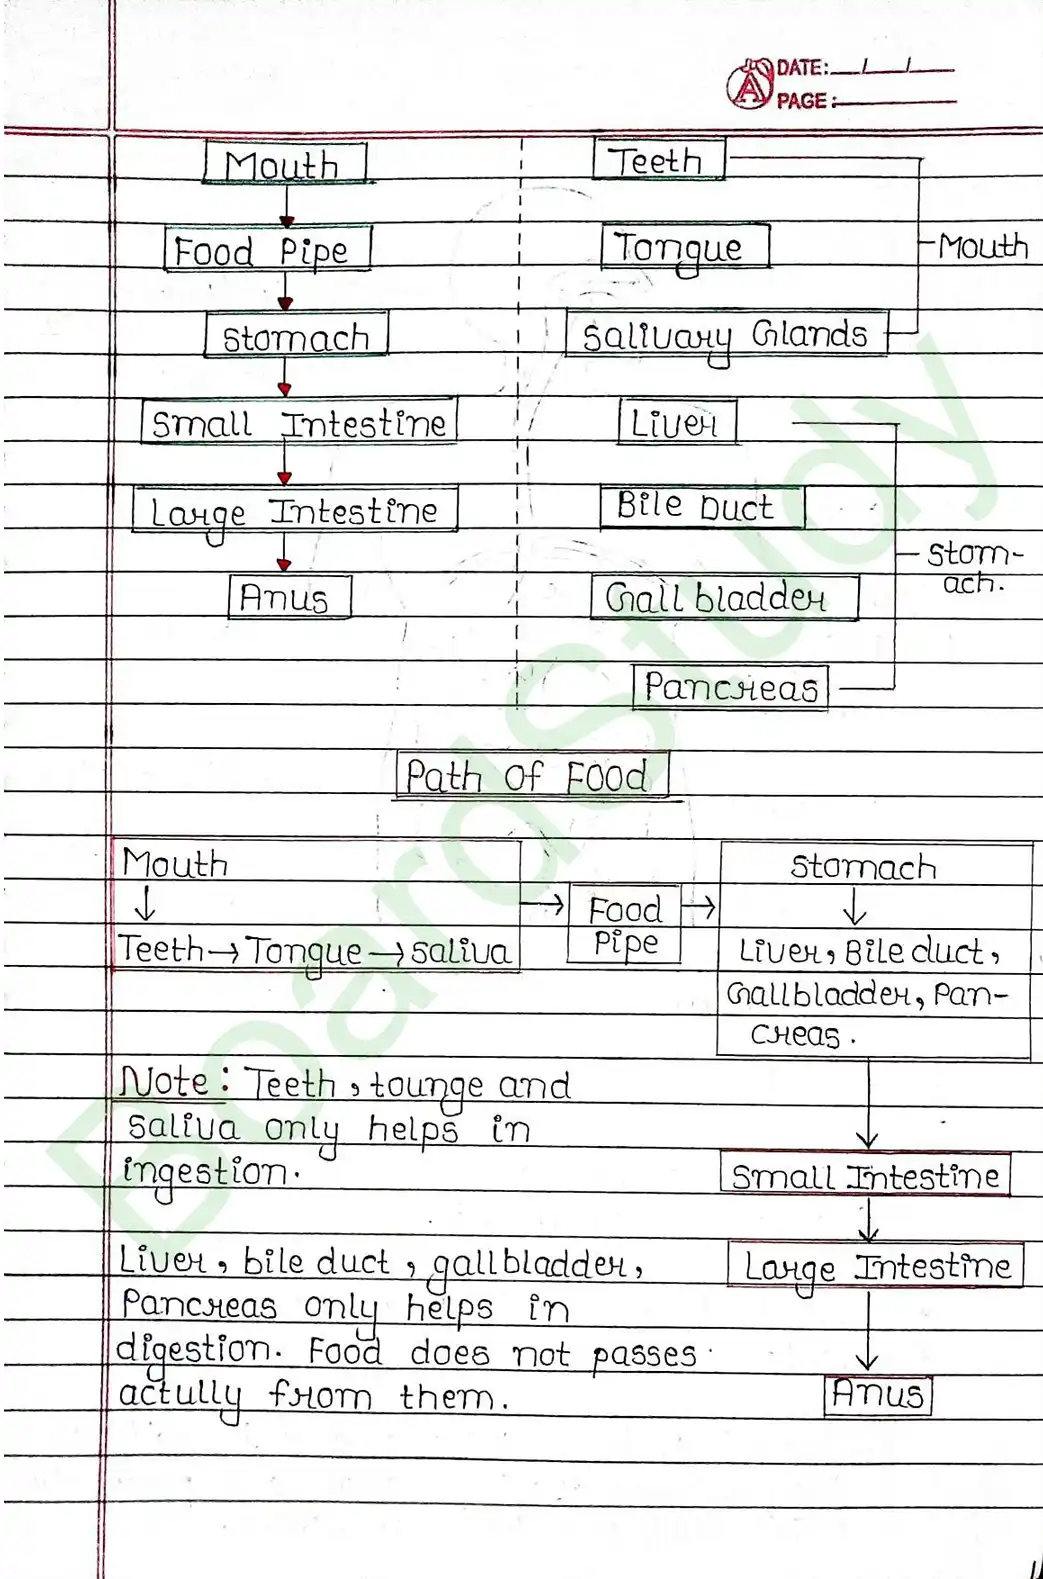 DATE: / /
PAGE:
Mouth
Food Pipe
Stomach
Small Intestine
Large Intestine
Anus
Teeth
Tongue
Salivary Glands
Mouth
Liver
Bile Duct
Gall bladder
Pancreas
Stom-
ach.
Path of Food
Mouth
↓
Teeth → Tongue → Saliva
→
Food
Pipe
→
Stomach
↓
Liver, Bile duct,
Gallbladder, Pan-
creas.
Small Intestine
Large Intestine
Anus
Note: Teeth, tounge and
Saliva only helps in
ingestion.
Liver, bile duct, gallbladder,
Pancreas only helps in
digestion. Food does not passes
actully from them.
BoardStudy